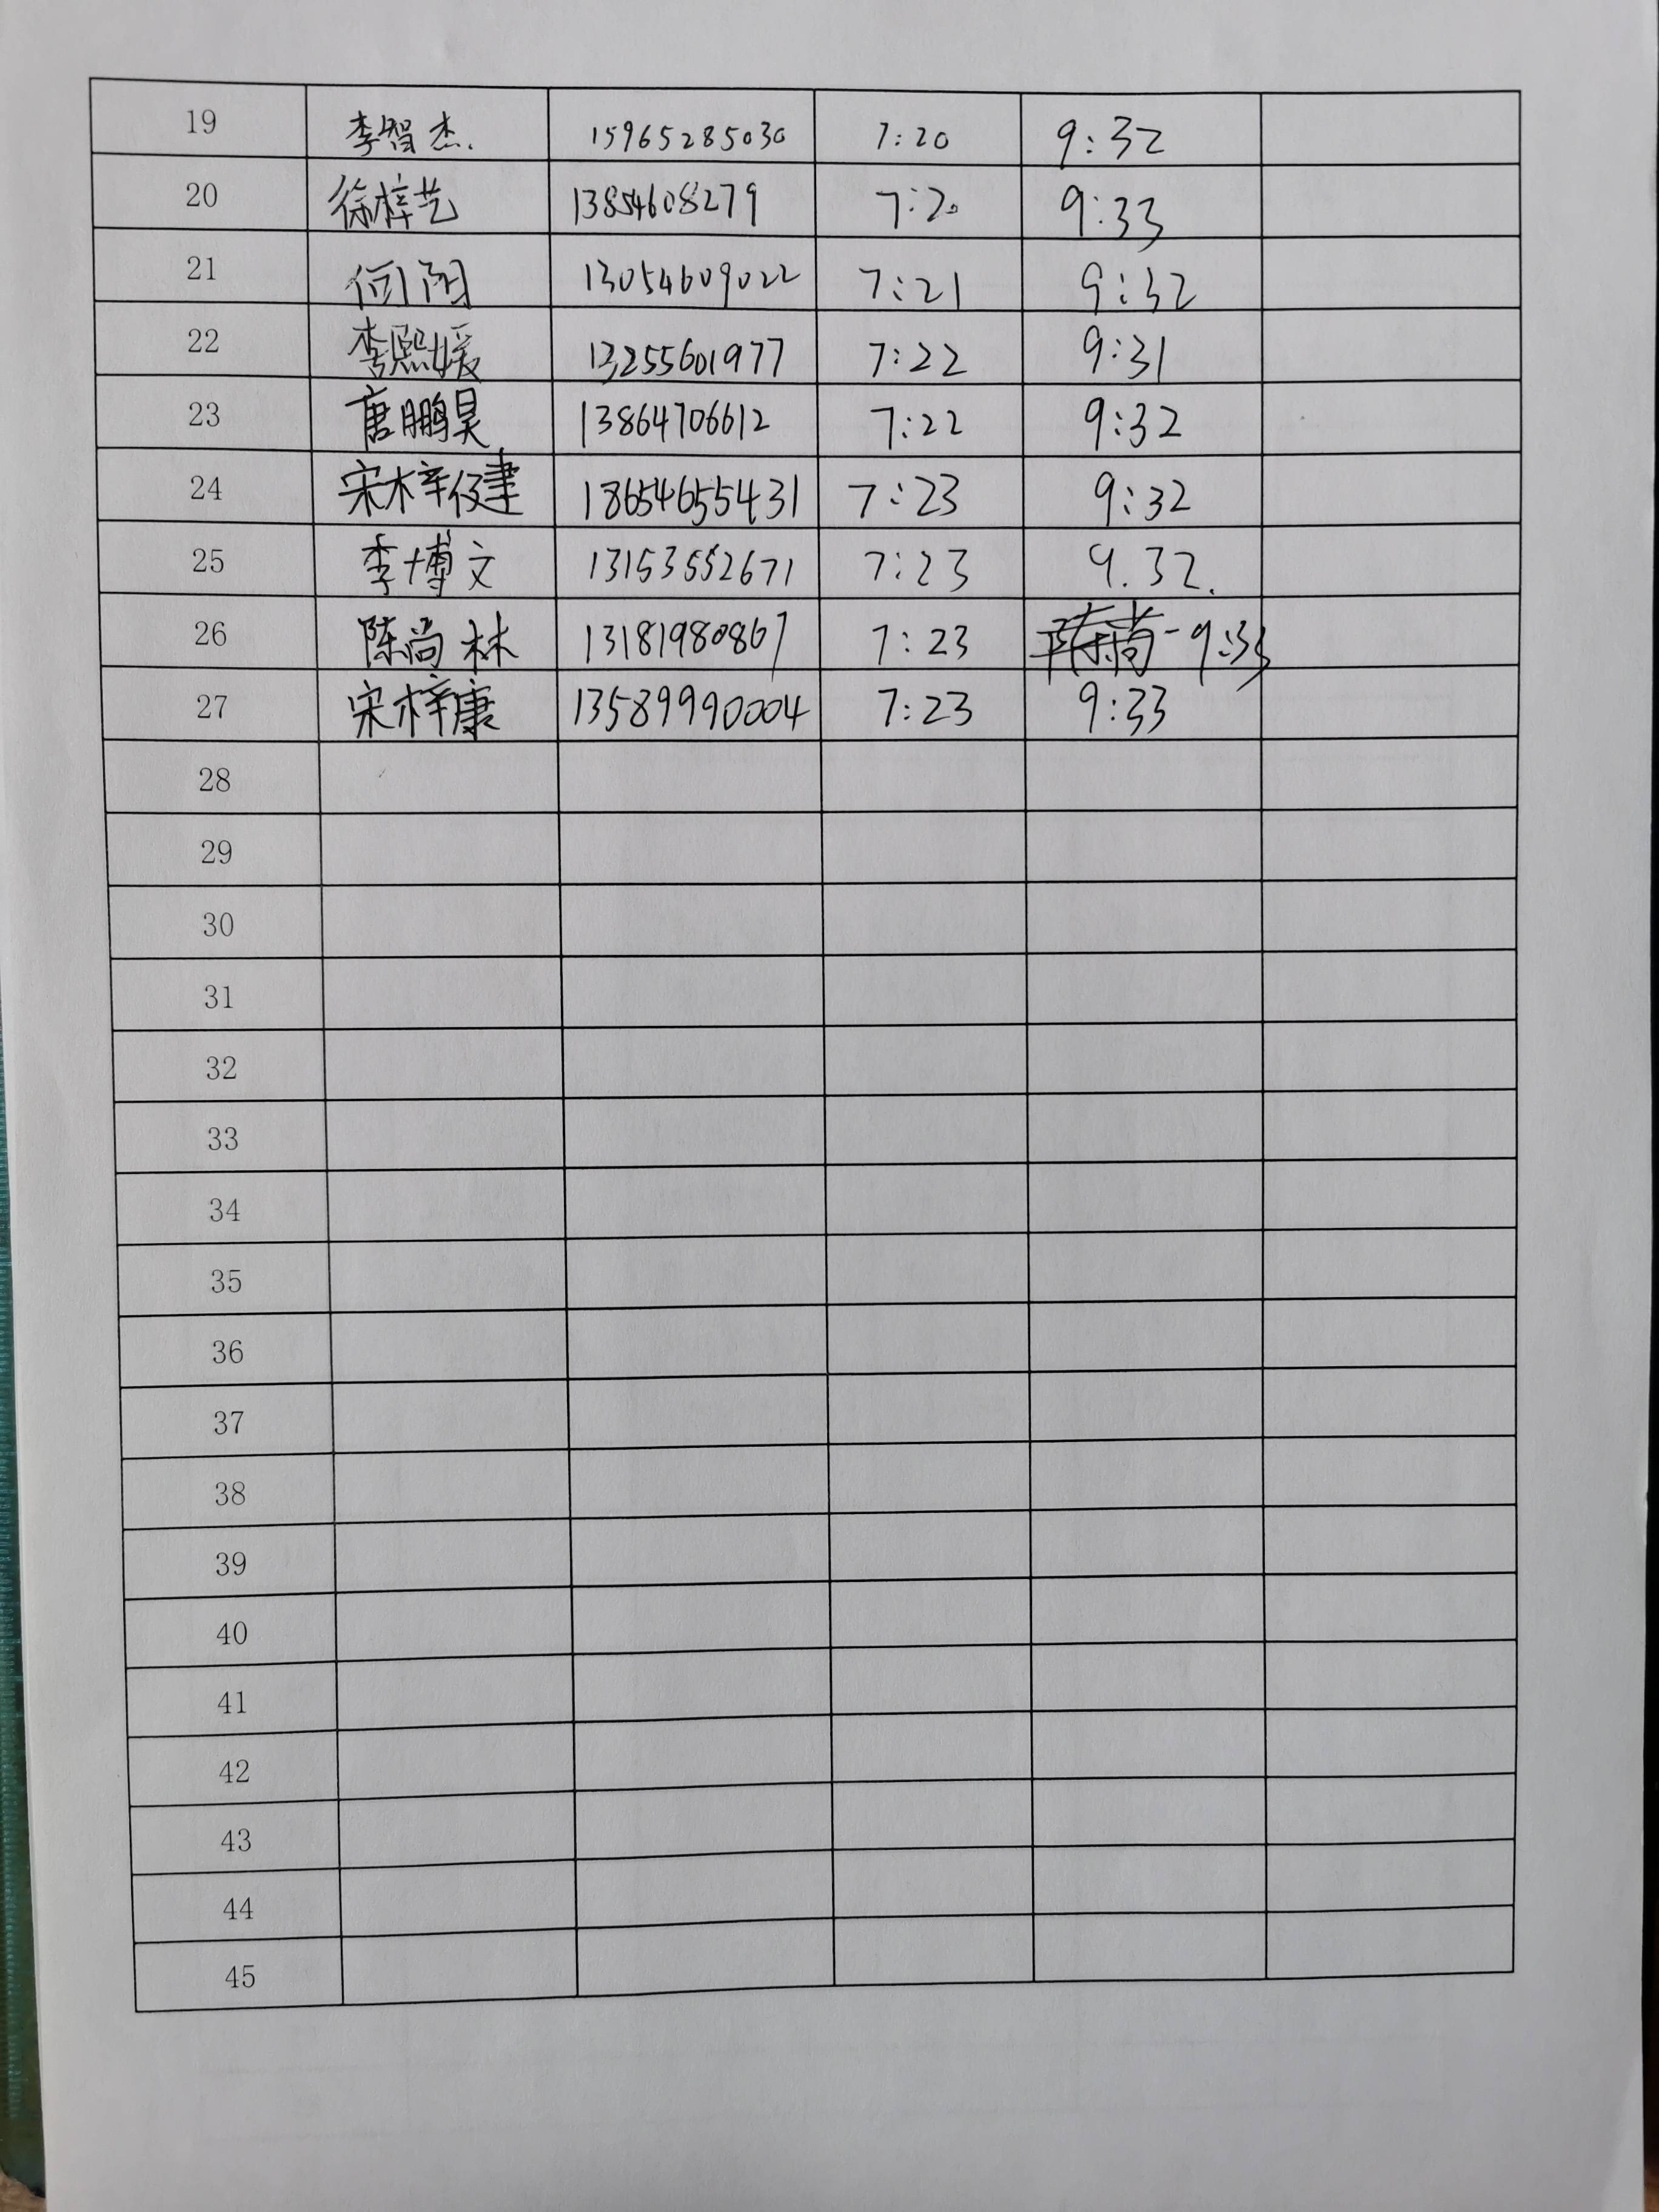 19 李智杰. 15965285030 7:20 9:32
20 徐梓艺 13854608279 7:20 9:33
21 何阳 13054609022 7:21 9:32
22 李熙媛 13255601977 7:22 9:31
23 唐鹏昊 13864706612 7:22 9:32
24 宋梓健 18654655431 7:23 9:32
25 李博文 13153552671 7:23 9.32.
26 陈尚林 13181980867 7:23 陈尚-9:33
27 宋梓康 13589990004 7:23 9:33
28
29
30
31
32
33
34
35
36
37
38
39
40
41
42
43
44
45